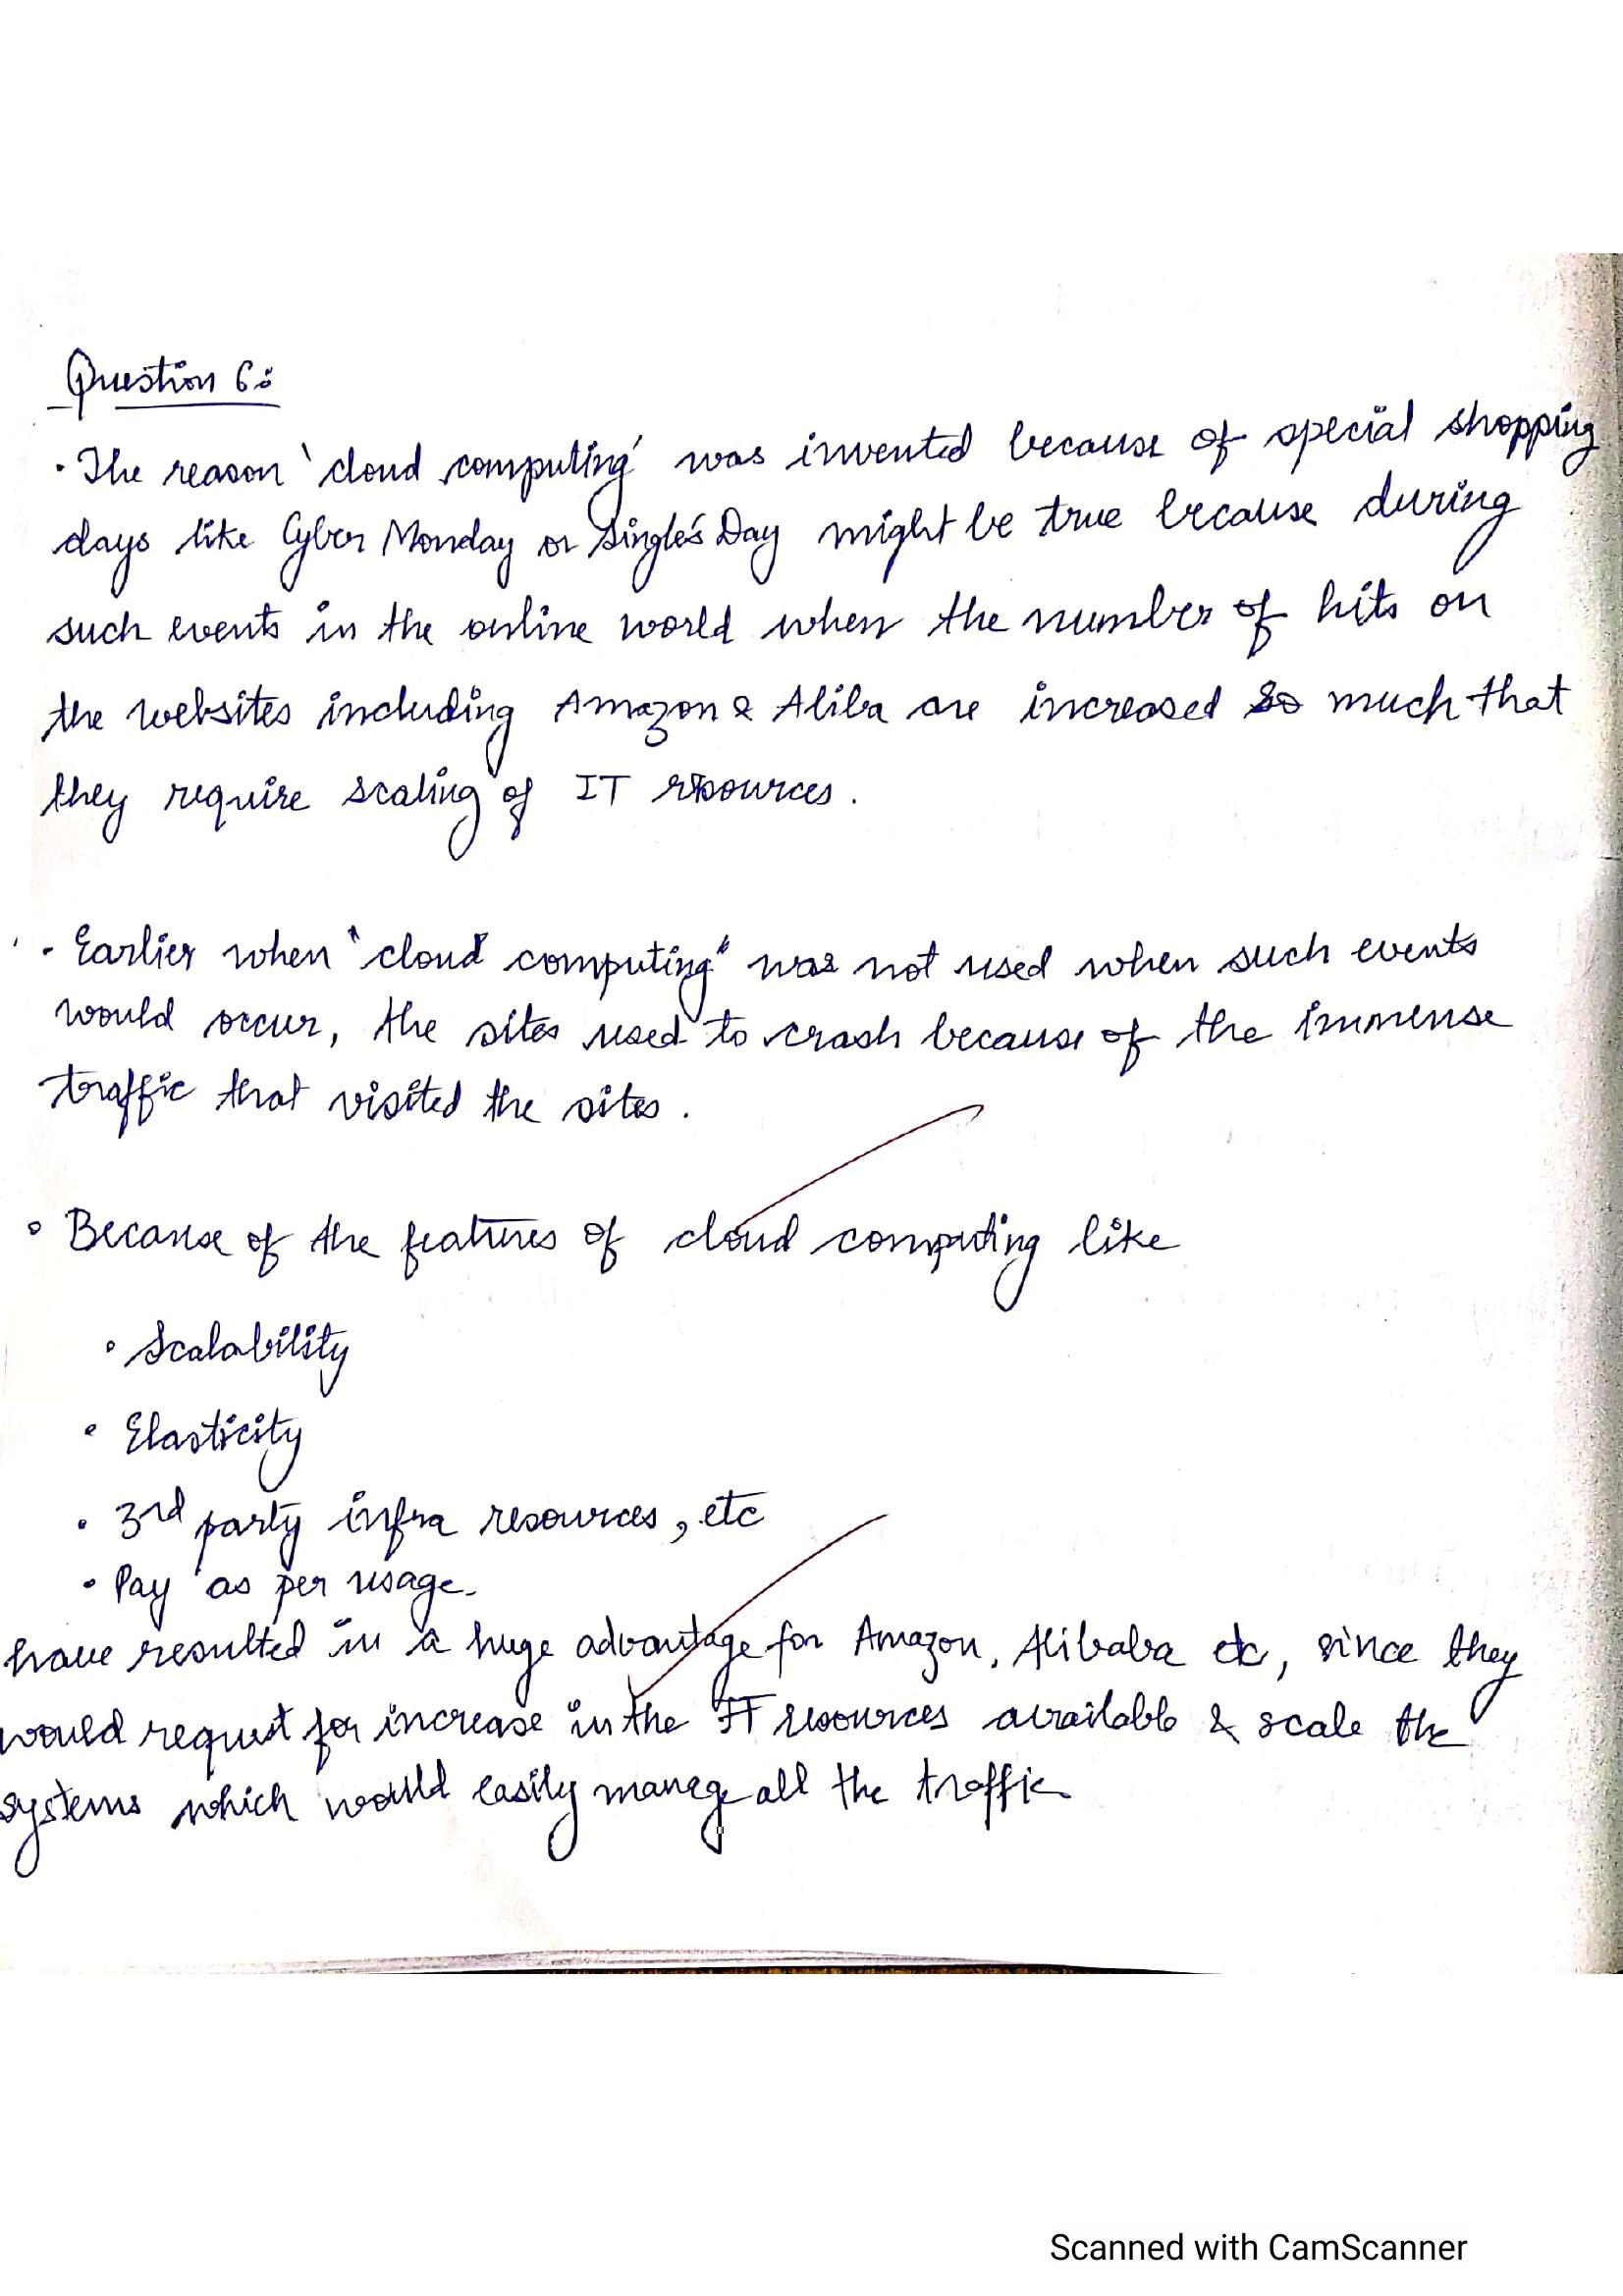 Question 6:
• The reason 'cloud computing' was invented because of special shopping
days like Cyber Monday or Single's Day might be true because during
such events in the online world when the number of hits on
the websites including Amazon & Aliba are increased so much that
they require scaling of IT resources.
- Earlier when "cloud computing" was not used when such events
would occur, the sites used to crash because of the immense
traffic that visited the sites.
• Because of the features of cloud computing like
• Scalability
• Elasticity
• 3rd party infra resources, etc
• Pay as per usage.
have resulted in a huge advantage for Amazon, Alibaba etc, since they
would request for increase in the IT resources available & scale the
systems which would easily maneg all the traffic
Scanned with CamScanner